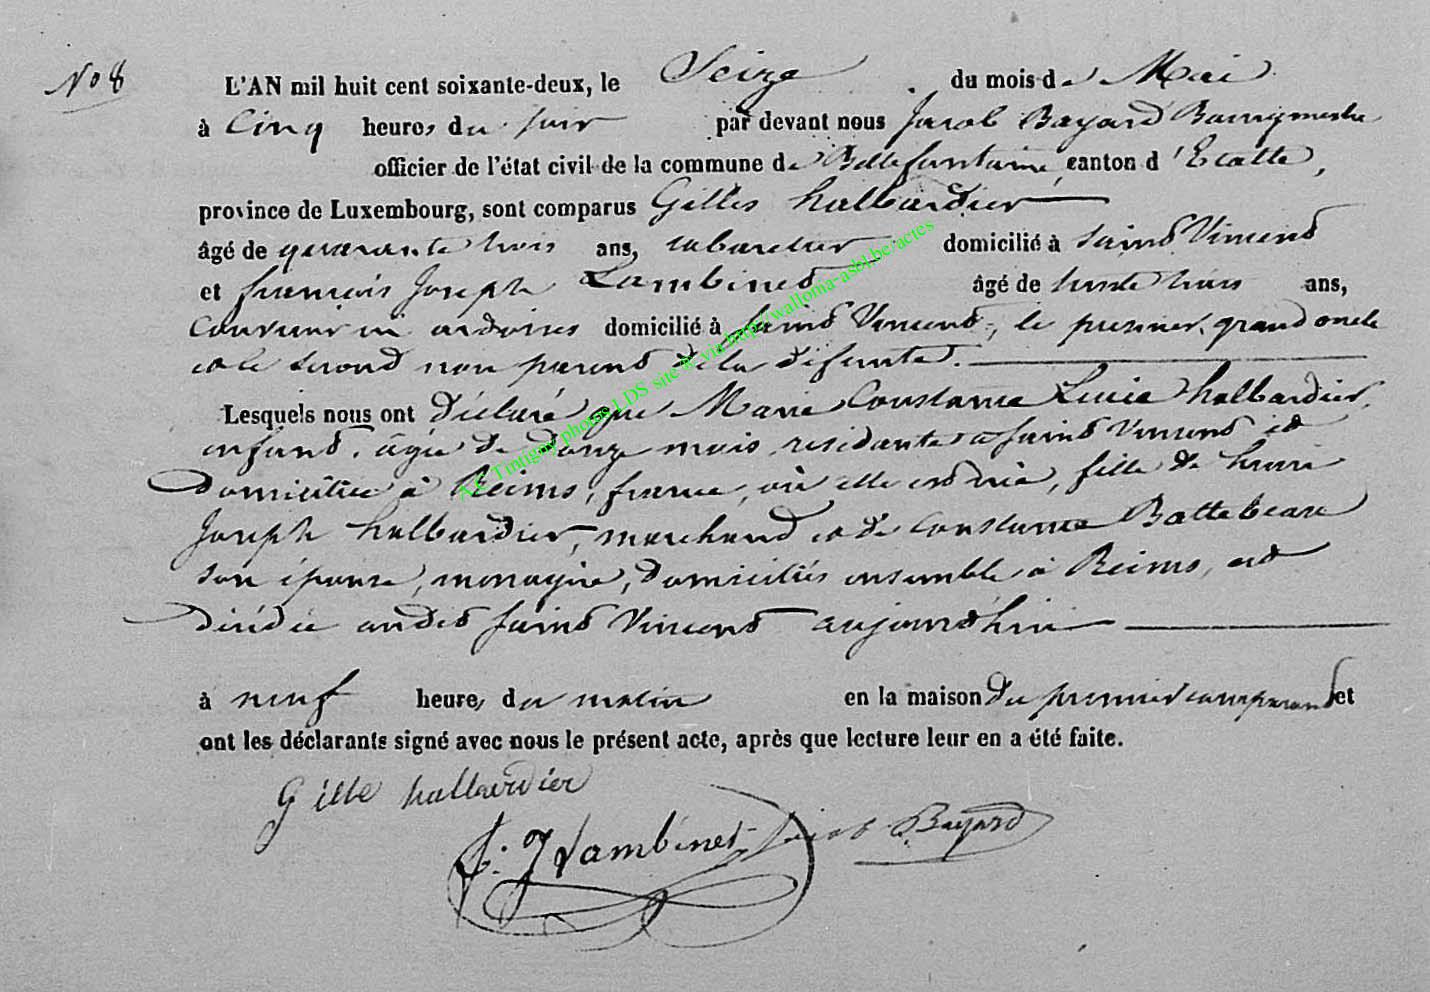 No 8
L'AN mil huit cent soixante-deux, le Seize du mois de Mai
à Cinq heures du soir par devant nous Jacob Bayard Bourgmestre
officier de l'état civil de la commune de Bellefontaine, canton d'Etalle,
province de Luxembourg, sont comparus Gilles halbardier
âgé de quarante trois ans, cabaretier domicilié à Saint Vincent
et françois Joseph Lambinet âgé de trente trois ans,
Couvreur en ardoises domicilié à Saint Vincent, le premier, grand oncle
et le second non parent de la défunte.
Lesquels nous ont déclaré que Marie Constance Lucie halbardier,
enfant, âgée de onze mois, residante à saint Vincent et
domiciliée à Reims, france, où elle est née, fille de henri
Joseph halbardier, marchand et de Constance Battebeau
son épouse, menagère, domiciliés ensemble à Reims, est
décédée audit saint Vincent aujourd'hui
à neuf heures du matin en la maison du premier comparant et
ont les déclarants signé avec nous le présent acte, après que lecture leur en a été faite.
Gille halbardier
f. J Lambinet Jacob Bayard
AE Tintigny photos LDS site & via http://walloma-asbl.be/actes